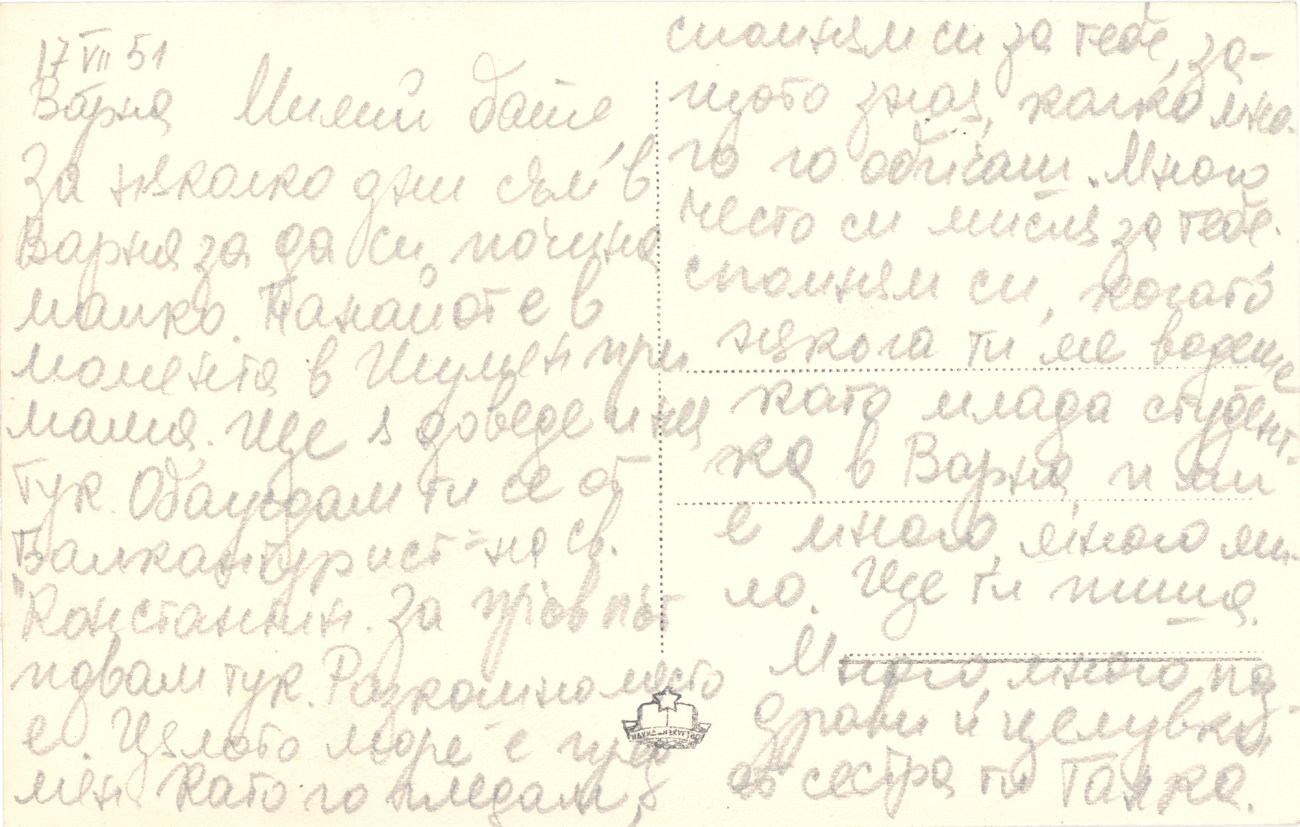 17 VII 51
Варна Милий бате
За няколко дни съм в
Варна за да си почина
малко. Панайот е в
момента в Шумен при
мама. Ще я доведе и нея
тук. Обаждам ти се от
Балкантурист - на Св.
Константин. За пръв път
идвам тук. Разкошно място
е. Цялото море е пред
мен. Като го гледам,
спомням си за тебе, за-
щото зная, колко мно-
го го обичаш. Много
често си мисля за тебе.
спомням си, когато
някога ти ме водеше
като млада студент-
ка в Варна и ми
е много, много ми-
ло. Ще ти пиша.
Много много поз-
драви и целувки
от сестра ти Ганка.
НАУКА И ИЗКУСТВО